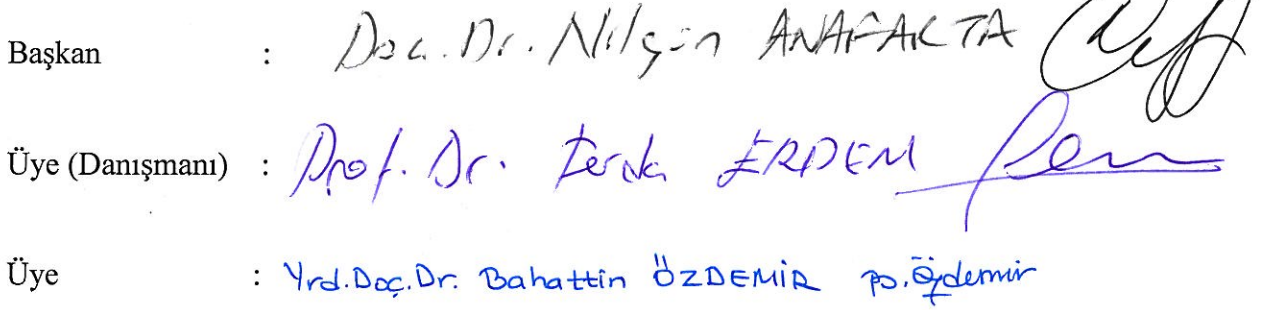 Başkan : Doç. Dr. Nilgün ANAFARTA
Üye (Danışmanı) : Prof. Dr. Ferda ERDEM
Üye : Yrd.Doç.Dr. Bahattin ÖZDEMİR B.Özdemir